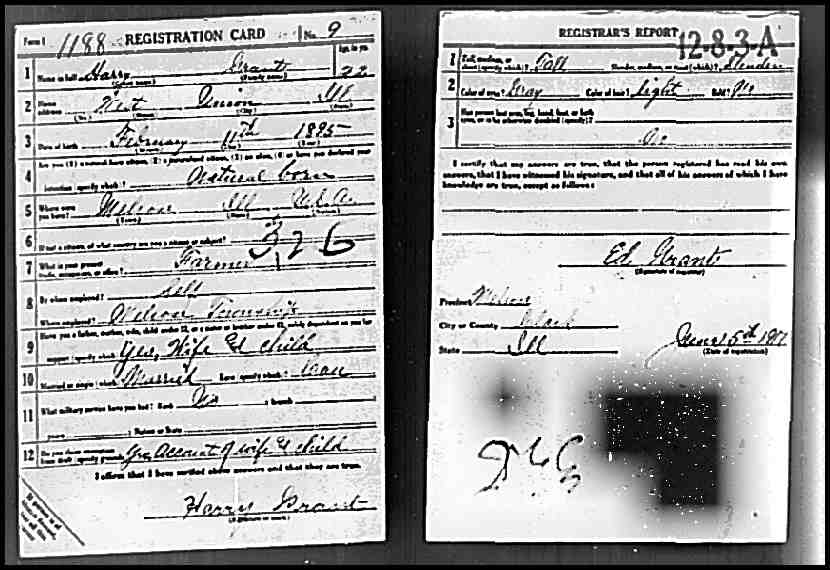 Form 1 1188 REGISTRATION CARD No. 9
Age, in yrs.
1 Name in full Harry Grant 22
(Given name) (Family name)
2 Home address West Union Ill
(No.) (Street) (City) (State)
3 Date of birth February 11th 1895
(Month) (Day) (Year)
Are you (1) a natural born citizen, (2) a naturalized citizen, (3) an alien, (4) or have you declared your
4 intention (specify which)? Natural born
5 Where were you born? Melrose Ill U.S.A.
(Town) (State) (Nation)
6 If not a citizen, of what country are you a citizen or subject?
326
7 What is your present trade, occupation, or office? Farmer
8 By whom employed? Self
Where employed? Melrose Township
Have you a father, mother, wife, child under 12, or a sister or brother under 12, solely dependent on you for
9 support (specify which)? Yes, Wife & child
10 Married or single (which)? Married Race (specify which)?
11 What military service have you had? Rank No ; branch
years ; Nation or State
12 Do you claim exemption from draft (specify grounds)? Yes, Account of wife & child
I affirm that I have verified above answers and that they are true.
Harry Grant
(Signature or mark)
REGISTRAR'S REPORT 12-8-3-A
1 Tall, medium, or short (specify which)? Tall Slender, medium, or stout (which)? Slender
2 Color of eyes? Gray Color of hair? Light Bald? No
3 Has person lost arm, leg, hand, foot, or both eyes, or is he otherwise disabled (specify)?
No
I certify that my answers are true, that the person registered has read his own
answers, that I have witnessed his signature, and that all of his answers of which I have
knowledge are true, except as follows:
Ed Grant
(Signature of registrar)
Precinct Melrose
City or County Clark
State Ill June 5th 1917
(Date of registration)